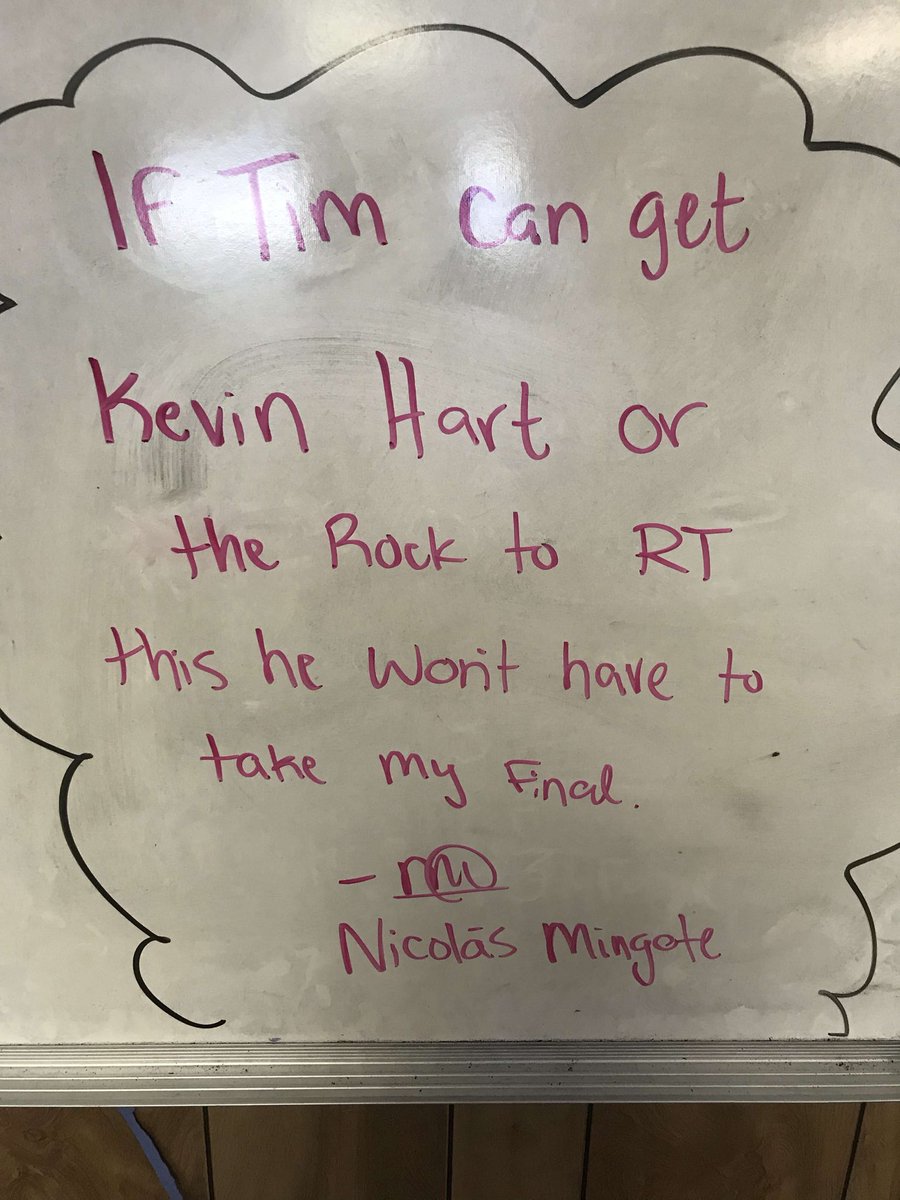 If Tim can get
Kevin Hart or
the Rock to RT
this he won't have to
take my Final.
Nicolás Mingote